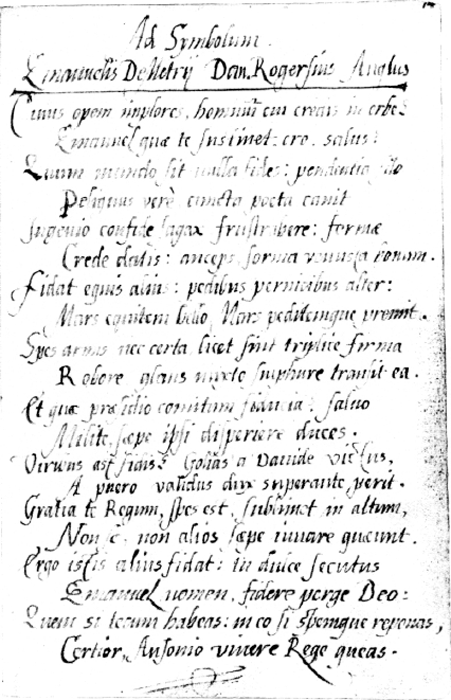 Ad Symbolum.
Emanuelis Demetrij Dan. Rogersius Anglus
Cuius opem implores, hominū cui credis in orbe?
Emanuel quæ te sustinet: ero. salus:
Quum mundo sit nulla fides: pendentia filo
Pelignus verè cuncta poeta canit
Ingenio confide sagax frustrabere: formæ
Crede datis: anceps forma venusta bonum.
Fidat equis alius: pedibus pernicibus alter:
Mars equitem bello, Mars peditemque premit.
Spes armis nec certa, licet sint triplice firma
Robore glans mixto sulphure transit ea.
Et quæ præsidio comitum fiducia? salvo
Milite, sæpe ipsi disperiere duces.
Viribus ast fidis? Golias a Davide victus,
A puero validus dux superante, perit.
Gratia te Regum, spes est, sublimet in altum,
Non se, non alios sæpe iuvare queunt.
Ergo istis alius fidat: tu dulce secutus
Emanuel nomen, fidere perge Deo:
Quem si tecum habeas: in eo si spemque reponas,
Certior, Ausonio vivere Rege queas.